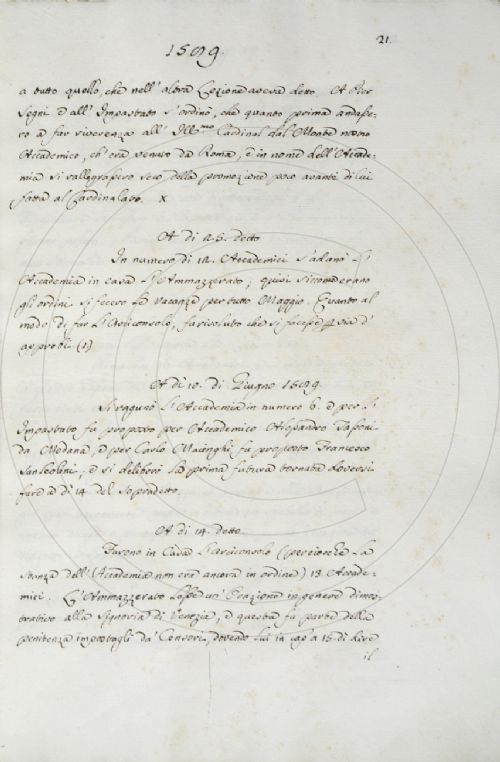 21.
1589.
a tutto quello, che nell' altra Lezione aveva detto. A Pier
Segni e all' Impastato s' ordinò, che quanto prima andasse-
ro a far riverenza all' Ill.mo Cardinal dal Monte nuovo
Accademico, ch' era venuto da Roma, e in nome dell' Accade-
mia si rallegrassero seco della promozione poco avanti di lui
fatta al Cardinalato. X
A dì 25. detto
In numero di 12. Accademici s' adunò l'
Accademia in casa l' Ammazzerato; quivi si
gli ordini. si fecero le vacanze per tutto Maggio. Quanto al
modo di far l' Arciconsolo, fu risoluto che si facesse via d'
(1)
A dì 10. di Giugno 1589.
Si ragunò l' Accademia in numero 6. e per l'
Impastato fu proposto per Accademico Alessandro
da Modana, e per Carlo fu proposto Francesco
Sanleolini, e si deliberò la prima futura tornata doversi
fare a dì 14 del sopradetto.
A dì 14. detto.
Furono in Casa l' Arciconsolo (perciocchè la
stanza dell' Accademia non era ancora in ordine) 13. Accade-
mici. L' Ammazzerato lesse un' Orazione in genere dimos-
trativo alla Signoria di Venezia, e questa fu parte della
penitenza impostagli da' Censori, dovendo lui in capo a 15. dì dire
il